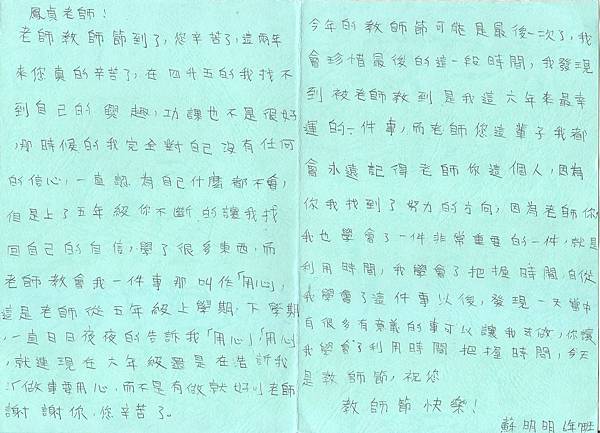 鳳貞老師！
老師教師節到了，您辛苦了，這兩年
來您真的辛苦了，在四升五的我找不
到自己的興趣，功課也不是很好
，那時候的我完全對自己沒有任何
的信心，一直認為自己什麼都不會，
但是上了五年級你不斷的讓我找
回自己的自信，學了很多東西，而
老師教會我一件事那叫作「用心」，
這是老師從五年級上學期、下學期
，一直日日夜夜的告訴我「用心」「用心」
，就連現在六年級還是在告訴我
「做事要用心，而不是有做就好」老師
謝謝你，您辛苦了。
今年的教師節可能是最後一次了，我
會珍惜最後的這一段時間，我發現
到被老師教到是我這六年來最幸
運的一件事，而老師您這輩子我都
會永遠記得老師你這個人，因為
你我找到了努力的方向，因為老師你
我也學會了一件非常重要的一件，就是
利用時間，我學會了把握時間，自從
我學會了這件事以後，發現一天當中
有很多有意義的事可以讓我去做，你讓
我學會了利用時間把握時間，今天
是教師節，祝您
教師節快樂！
蘇明明